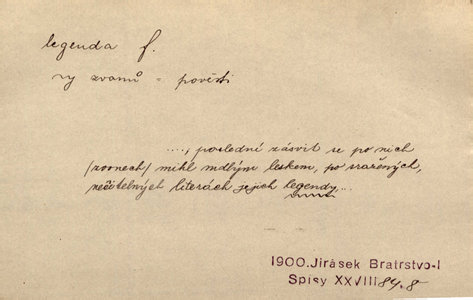 legenda f.
ny zvonů = pověsti
...., poslední zásvit se po nich
/zvonech/ mihl mdlým leskem, po sražených,
nečitelných literách jejich legendy...
1900. Jirásek Bratrstvo-I
Spisy XXVIII 84.8